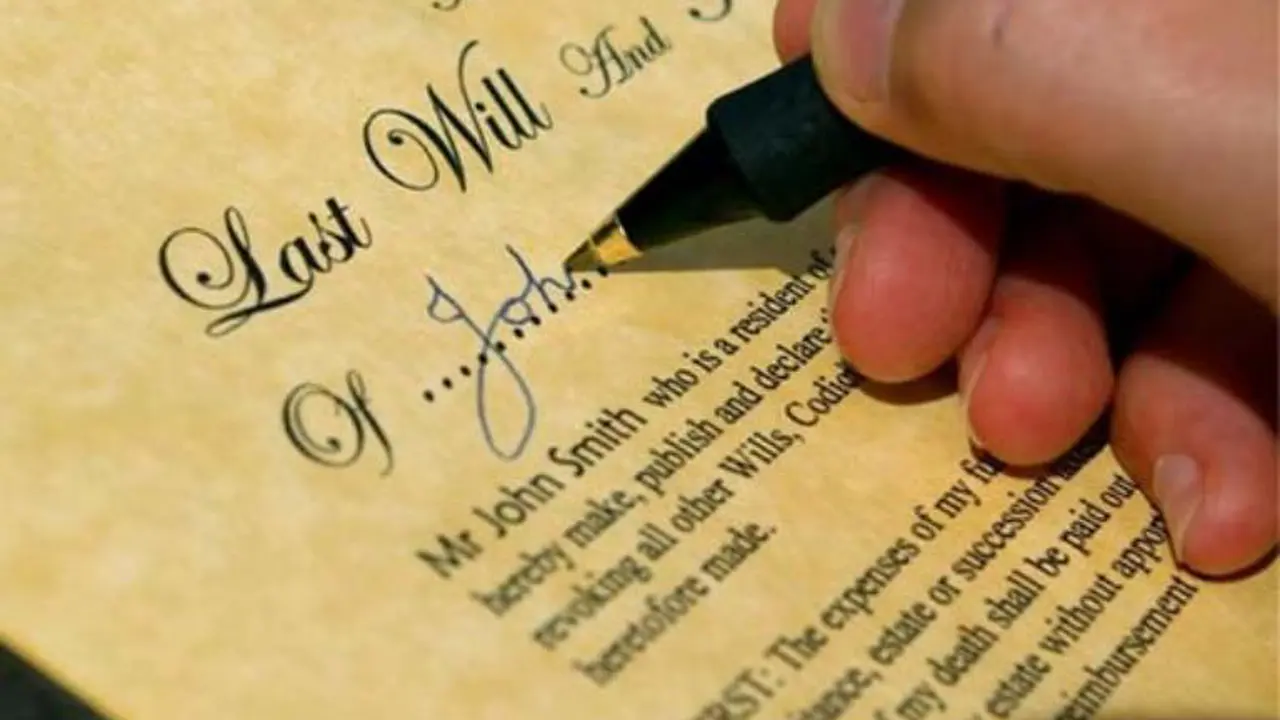 Last Will And
Of ...John...
Mr John Smith who is a resident of
hereby make, publish and declare
revoking all other Wills,
heretofore made.
The expenses of my
estate or succession
my death shall be paid out
estate without